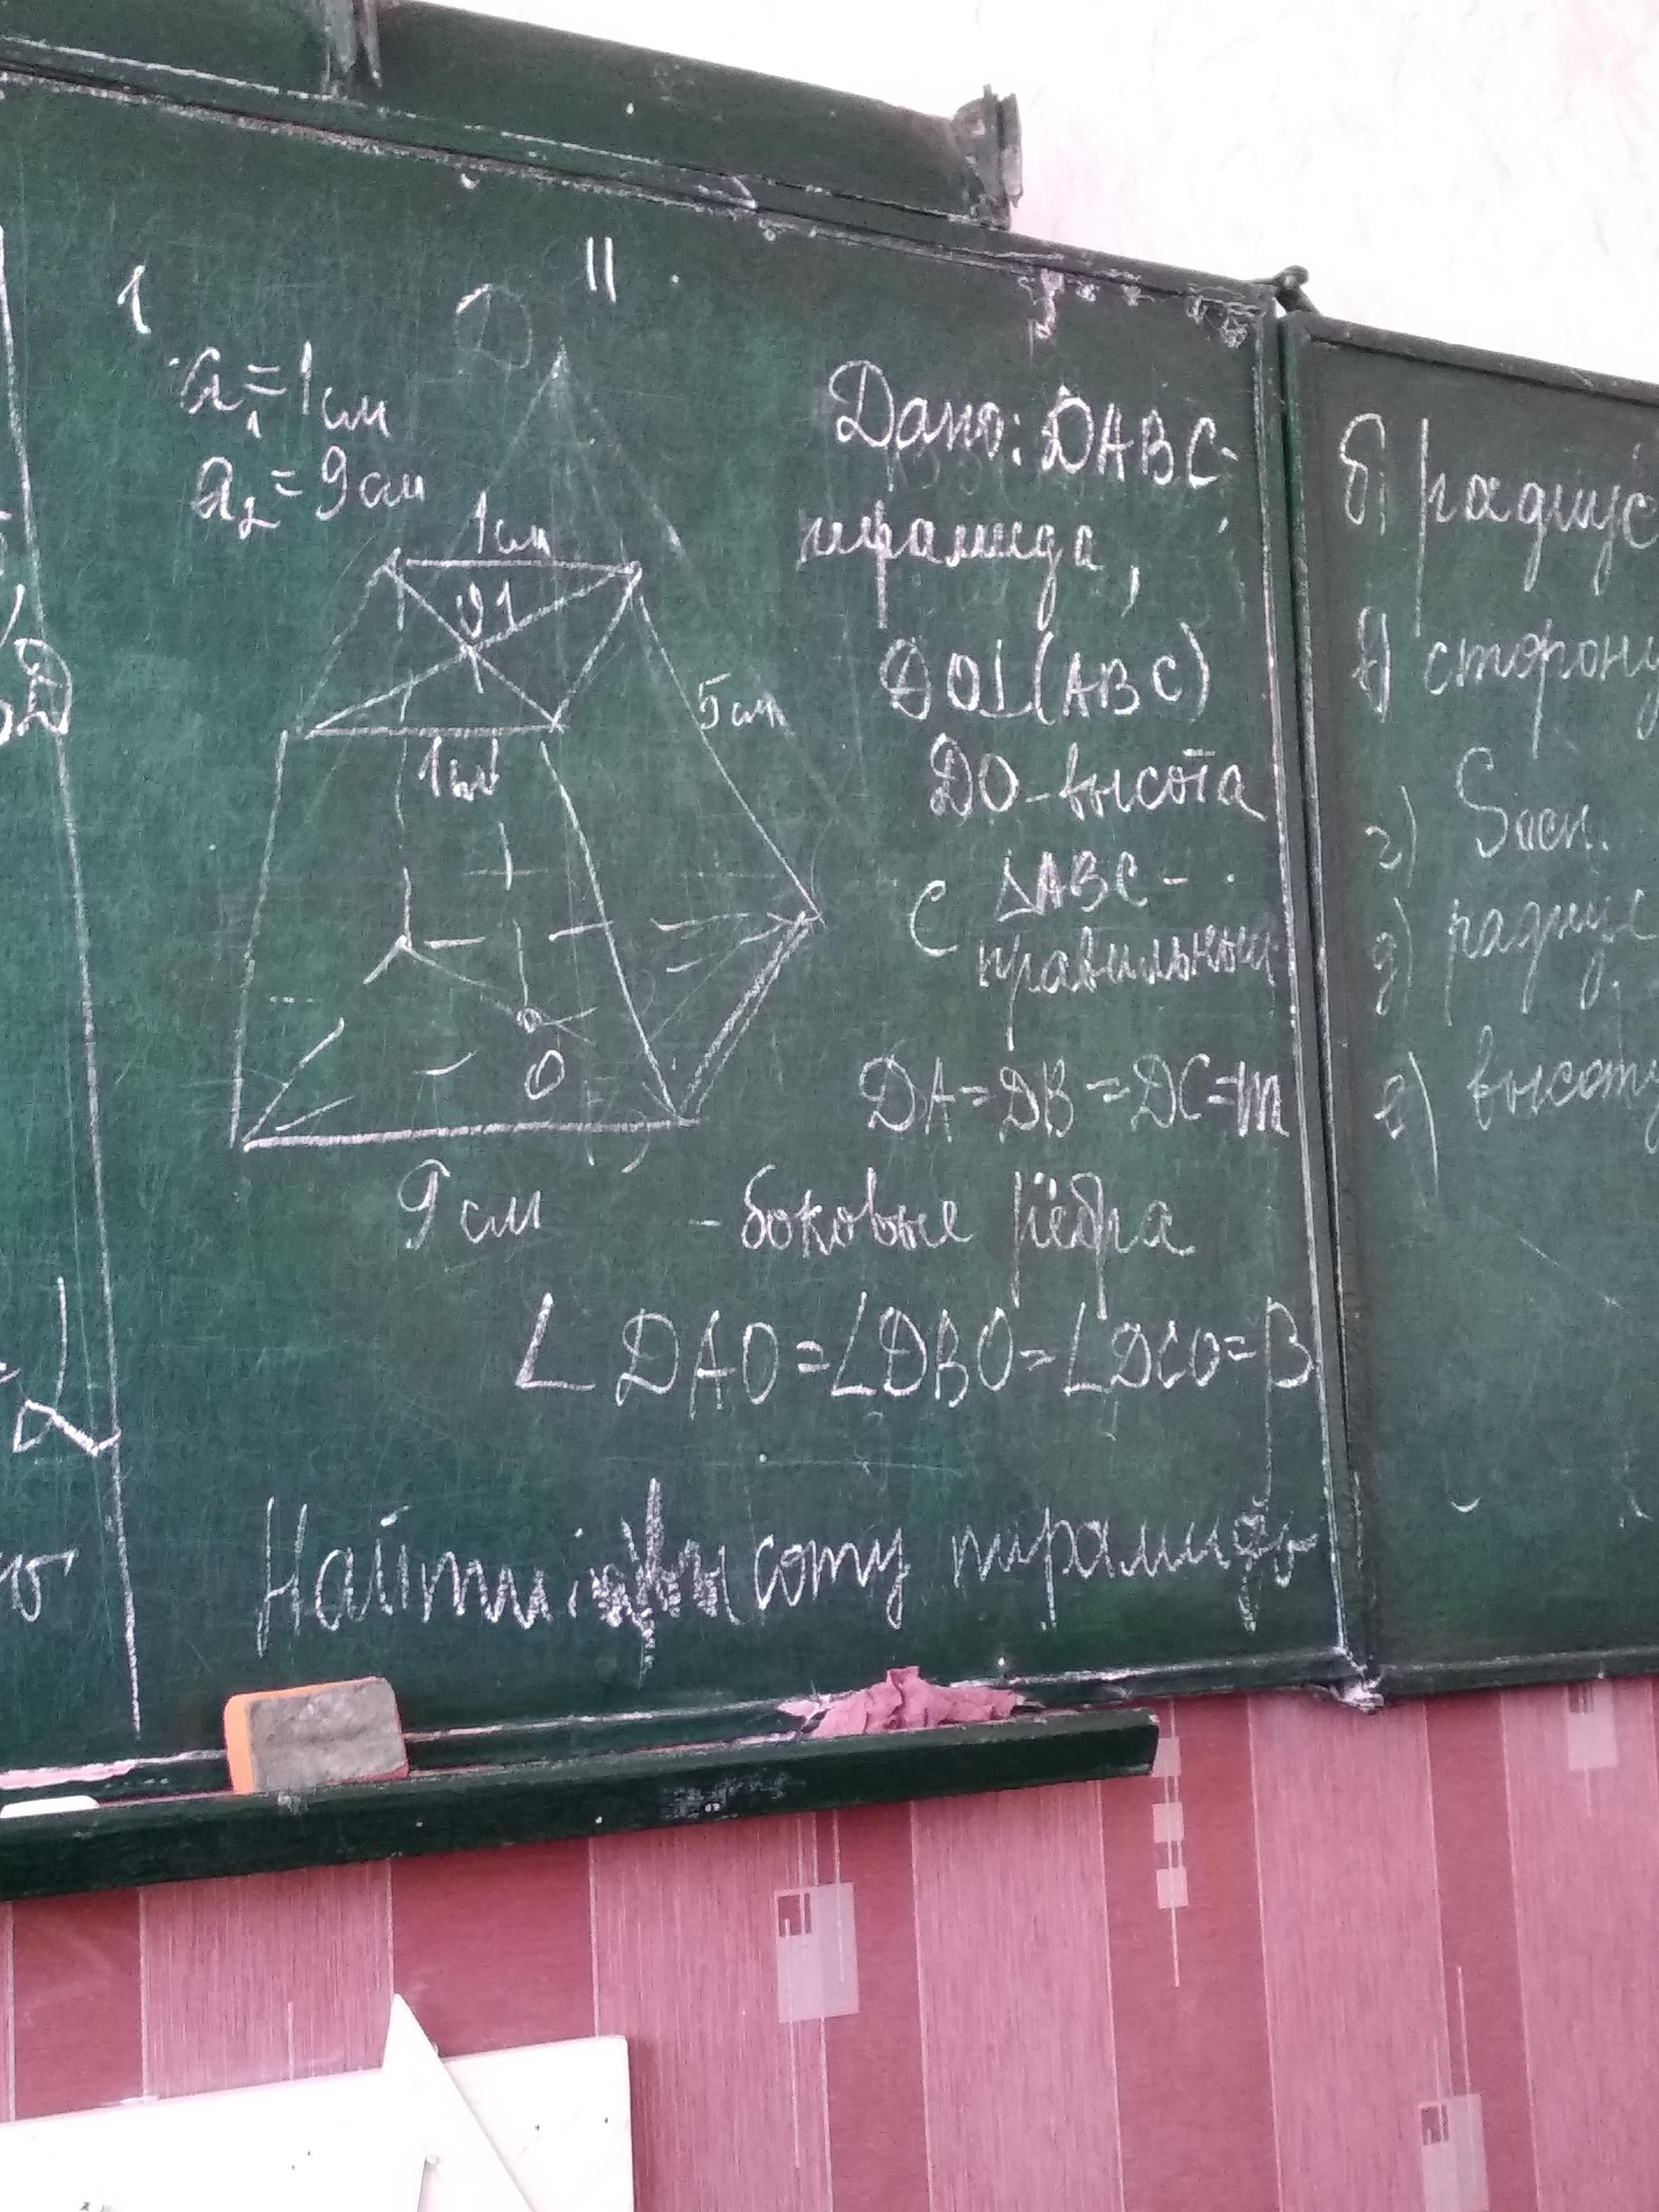 1
II
a₁=1см
a₂=9см
1см
O1
1см
5см
O
9см
Дано: DABC-
пирамида,
DO⊥(ABC)
DO-высота
△ABC-
правильный
DA=DB=DC=m
-боковые рёбра
∠DAO=∠DBO=∠DCO=β
Найти: высоту пирамиды
б) радиус
в) сторону
г) Sосн.
д) радиус
е) высоту